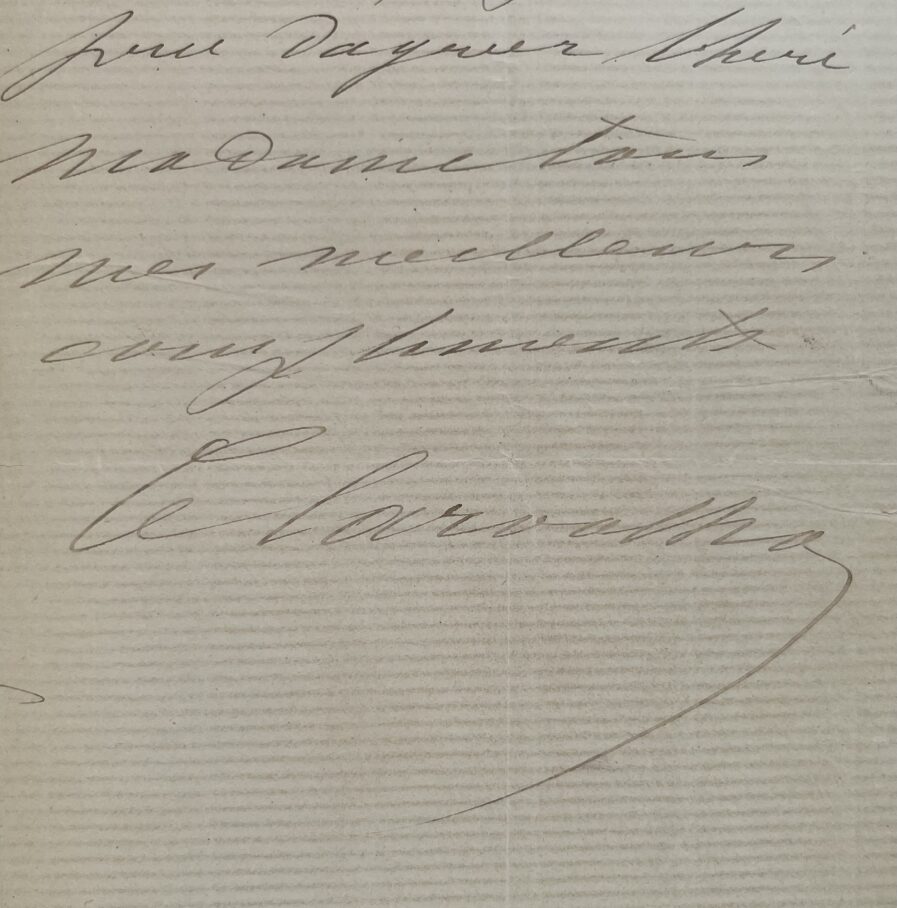 prie d'agréer chère
madame tous
mes meilleurs
compliments
C Carvalho